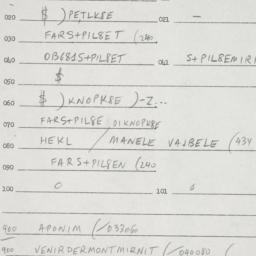 020 $ ) PETLK8E 021 -
030 FARS+PIL8ET (240
040 OB681S+PIL8ET 041 S+PIL8EMIRI
050 $
060 $ ) KNOPK8E ) -Z...
070 FARS+PIL8E DIKNOPK8E
080 HEKL / MANELE VAJBELE (434
090 FARS+PIL8EN (240
100 0 101 0
400 APONIM (/033060
900 VENIRDERMONTMIRNIT (/040080 (